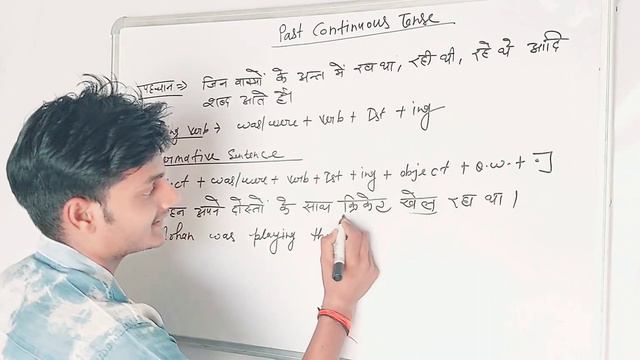 Past Continuous Tense
पहचान ⇒ जिन वाक्यों के अन्त में रहा था, रही थी, रहे थे आदि
शब्द आते हैं।
verb → was/were + verb + Ist + ing
Sentence
+ was/were + verb + Ist + ing + object + O.w. + .]
अपने दोस्तों के साथ क्रिकेट खेल रहा था।
was playing